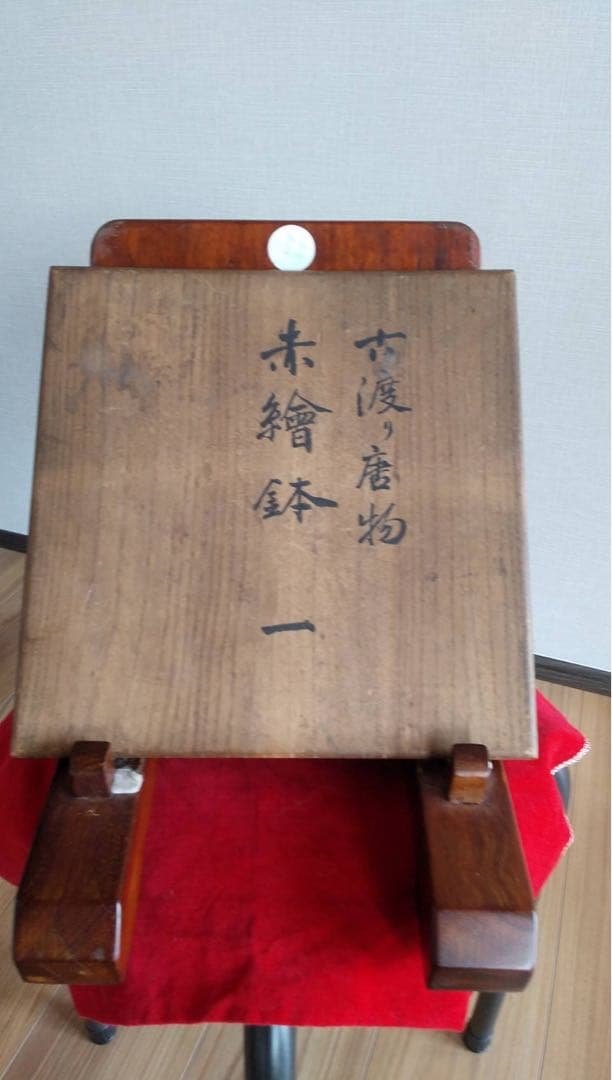 古渡り唐物
赤繪鉢 一